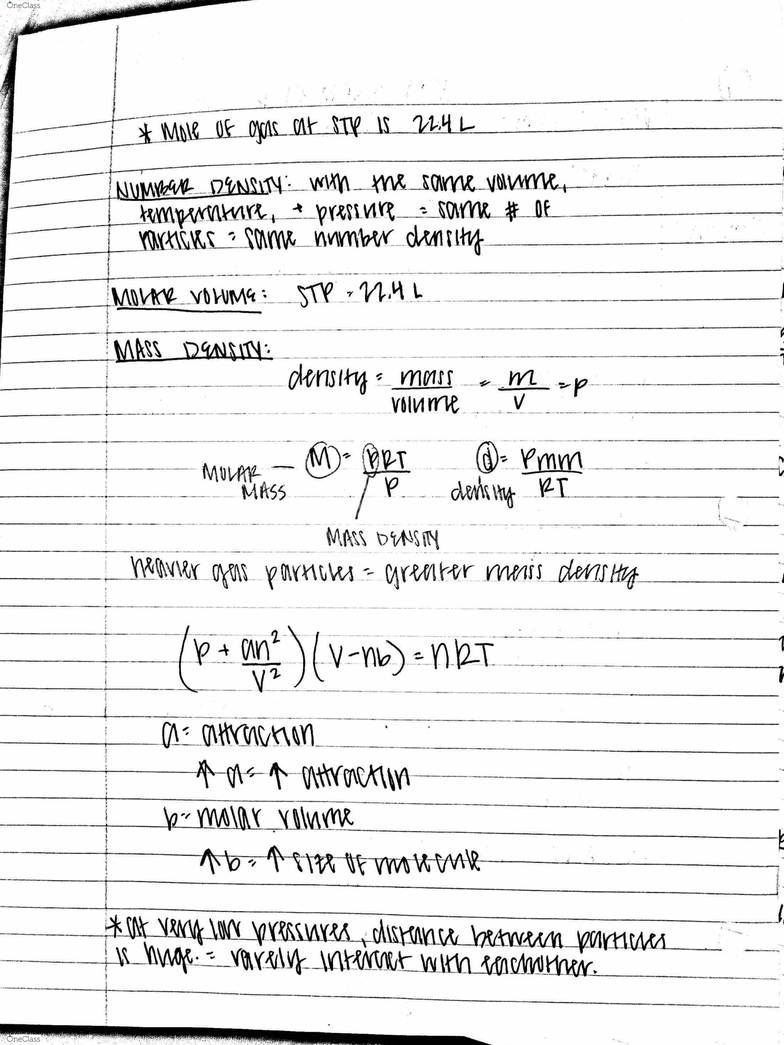 OneClass
* Mole of gas at STP is 22.4 L
NUMBER DENSITY: with the same volume,
temperature, + pressure = same # of
particles = same number density
MOLAR VOLUME: STP = 22.4 L
MASS DENSITY:
density = mass/volume = m/V = ρ
MOLAR MASS — M = ρRT/P
density d = Pmm/RT
MASS DENSITY
heavier gas particles = greater mass density
(P + an²/V²)(V-nb) = nRT
a = attraction
↑ a = ↑ attraction
b = molar volume
↑ b = ↑ size of molecule
* at very low pressures, distance between particles
is huge. = rarely interact with eachother.
OneClass